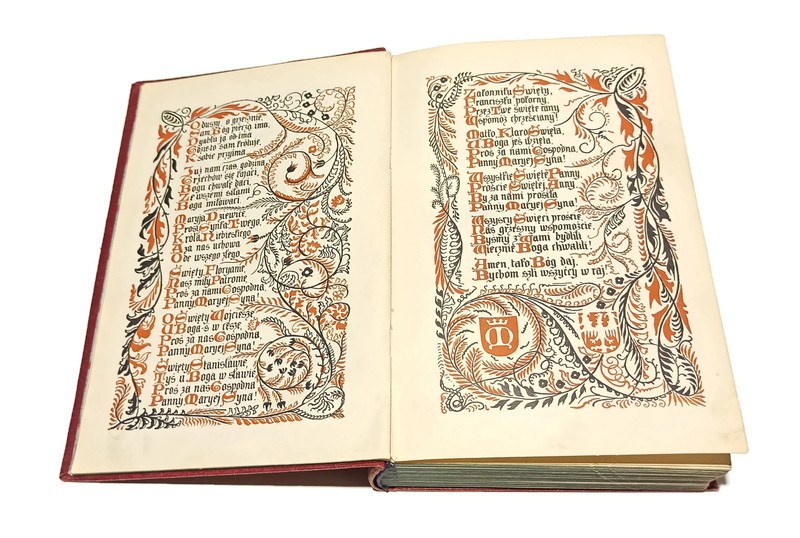 O duszy, o grzesznej
Sam Bóg pieczą ima,
Dyabłu ją otima
Gdzie to sam króluje,
K sobie przyima.
Już nam czas godzina
Grzechów się kajaci,
Bogu chwałę daci,
Ze wszemi siłami
Boga miłowaci.
Maryja Dziewice,
Proś Syna Twego,
Króla Niebieskiego
za nas uchowa
Ode wszego złego.
Święty Floryanie,
Nasz miły Patronie,
Proś za nami Gospodna,
Panny Maryej Syna!
Święty Wojciesze,
U Boga-ś w cesze,
Proś za nas Gospodna,
Panny Maryej Syna!
Święty Stanisławie,
Tyś u Boga w sławie,
Proś za nas Gospodna
Panny Maryej Syna!
Zakonniku Święty,
Franciszku pokorny,
Przez Twe święte rany
Wspomóż chrześciany!
Matko Klaro Święta,
U Boga jeś wzięta,
Proś za nami Gospodna,
Panny Maryej Syna!
Wszystkie Święte Panny,
Proście Świętej Anny,
By za nami prosiła
Panny Maryej Syna!
Wszyscy Święci proście,
Nas grzeszny wspomożcie,
Byśmy z Wami bydlili
Wiecznie Boga chwalili!
Amen, tako Bóg daj,
Bychom szli wszyścy w raj
M